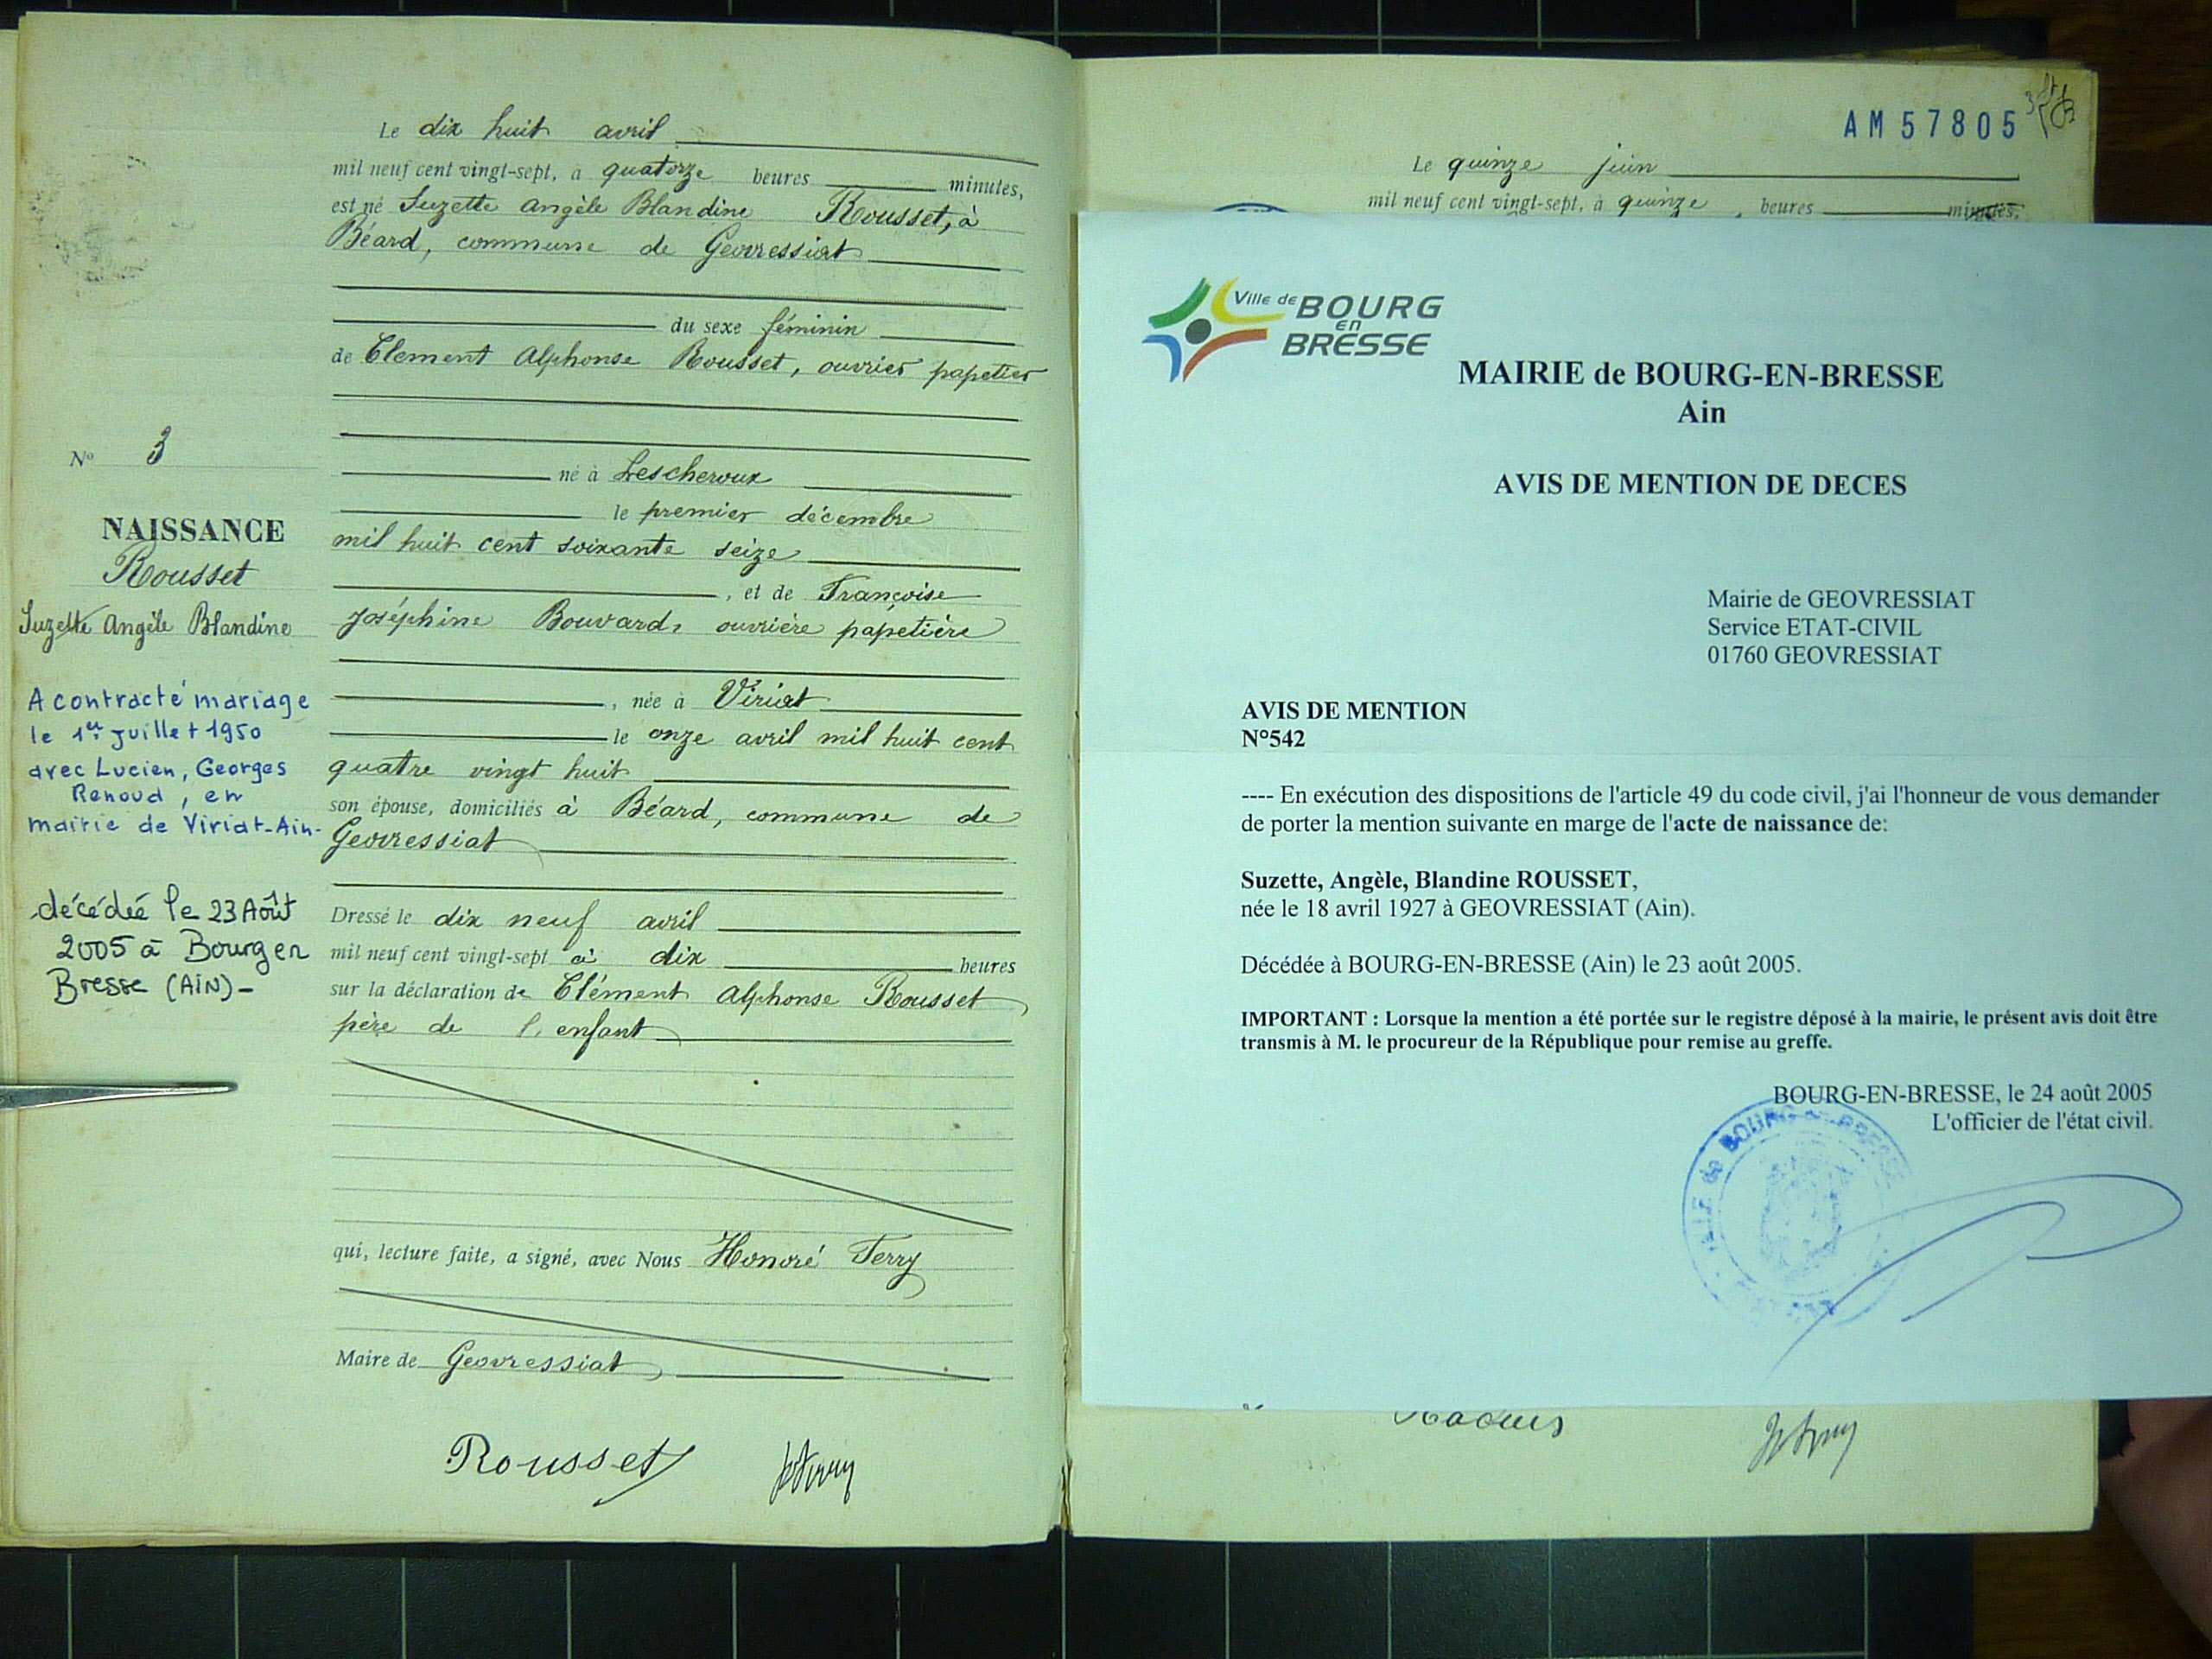 Le dix huit avril
mil neuf cent vingt-sept, à quatorze heures minutes,
est né Suzette Angèle Blandine Rousset, à
Béard, commune de Geovressiat
du sexe féminin
de Clément Alphonse Rousset, ouvrier papetier
né à Lescheroux
le premier décembre
mil huit cent soixante seize
, et de Françoise
Joséphine Bouvard, ouvrière papetière
, née à Viriat
le onze avril mil huit cent
quatre vingt huit
son épouse, domiciliés à Béard, commune de
Geovressiat
Dressé le dix neuf avril
mil neuf cent vingt-sept à dix heures
sur la déclaration de Clément Alphonse Rousset
père de l'enfant
qui, lecture faite, a signé, avec Nous Honoré Ferry
Maire de Geovressiat
Rousset
No 3
NAISSANCE
Rousset
Suzette Angèle Blandine
A contracté mariage
le 1er juillet 1950
avec Lucien, Georges
Renoud, en
mairie de Viriat-Ain-
décédée le 23 Août
2005 à Bourg en
Bresse (AIN)-
AM 57805
Le quinze juin
mil neuf cent vingt-sept, à quinze heures minutes,
Ville de BOURG
en
BRESSE
MAIRIE de BOURG-EN-BRESSE
Ain
AVIS DE MENTION DE DECES
Mairie de GEOVRESSIAT
Service ETAT-CIVIL
01760 GEOVRESSIAT
AVIS DE MENTION
N°542
---- En exécution des dispositions de l'article 49 du code civil, j'ai l'honneur de vous demander
de porter la mention suivante en marge de l'acte de naissance de:
Suzette, Angèle, Blandine ROUSSET,
née le 18 avril 1927 à GEOVRESSIAT (Ain).
Décédée à BOURG-EN-BRESSE (Ain) le 23 août 2005.
IMPORTANT : Lorsque la mention a été portée sur le registre déposé à la mairie, le présent avis doit être
transmis à M. le procureur de la République pour remise au greffe.
BOURG-EN-BRESSE, le 24 août 2005
L'officier de l'état civil.